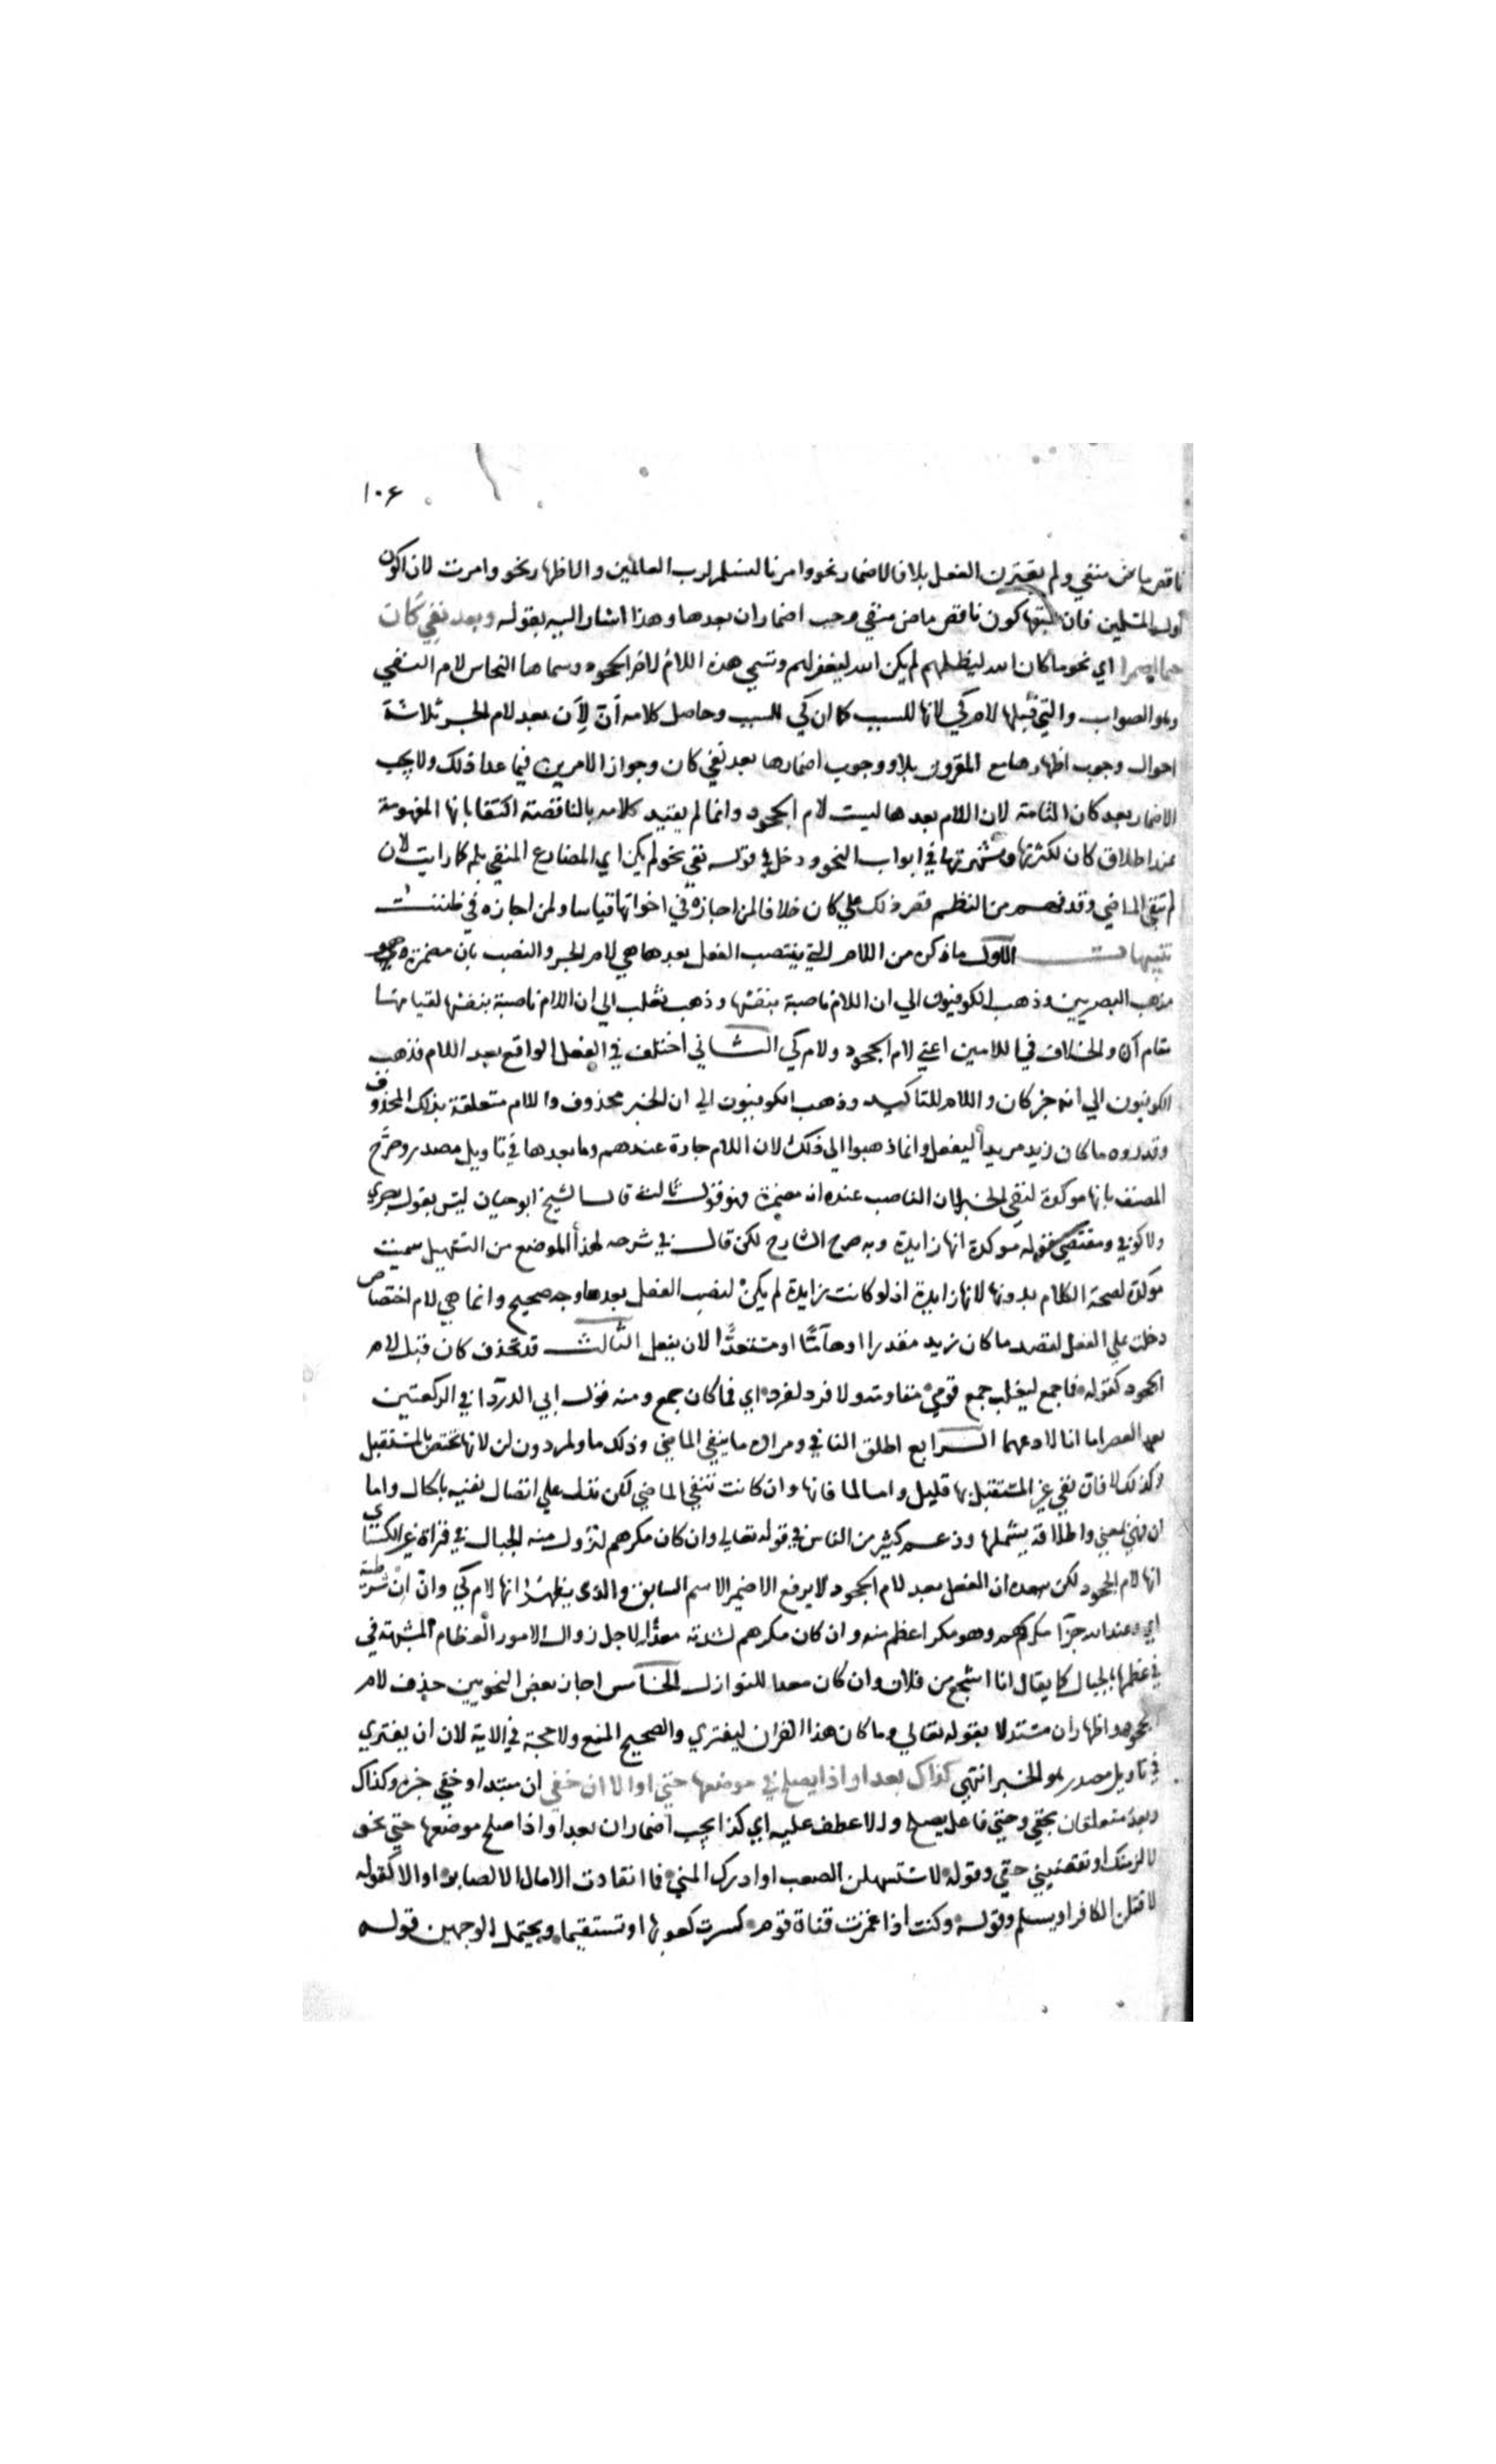 ١٠٤
ناقص ماض منفي ولم يقترن الفعل بلا فالاضمار نحو وامرنا لنسلم لرب العالمين والاظهار نحو وامرت لان اكون
اول المسلمين فان سبقها كون ناقص ماض منفي وجب اضمار ان بعدها وهذا اشار اليه بقوله وبعد نفي كان
حتما اضمرا اي نحو ما كان الله ليظلمهم لم يكن الله ليغفر لهم وتسمي هذه اللام لام الجحود وسماها النحاس لام النفي
وهو الصواب والتي قبلها لام كي لانها للسبب كما ان كي للسبب وحاصل كلامه ان لأن بعد لام الجر ثلاثة
احوال وجوب اظهارها مع المقرون بلا ووجوب اضمارها بعد نفي كان وجواز الامرين فيما عدا ذلك ولا يجب
الاضمار بعد كان التامة لان اللام بعدها ليست لام الجحود وانما لم يقيد كلامه بالناقصة اكتفا بانها المفهومة
عند اطلاق كان لكثرتها وشهرتها في ابواب النحو ودخل في قوله نفي نحو لم يكن اي المضارع المنفي بلم كما رايت لان
لم تنفي الماضي وقد فهم من النظم قصر ذلك علي كان خلافا لمن اجازه في اخواتها قياسا ولمن اجازه في ظننت
تنبيهات الاول ما ذكره من اللام التي ينتصب الفعل بعدها هي لام الجر والنصب بان مضمرة هو
مذهب البصريين وذهب الكوفيون الي ان اللام ناصبة بنفسها وذهب ثعلب الي ان اللام ناصبة بنفسها لقيامها
مقام ان والخلاف في اللامين اعني لام الجحود ولام كي الثاني اختلف في الفعل الواقع بعد اللام فذهب
الكوفيون الي انه خبر كان واللام للتاكيد وذهب الكوفيون الي ان الخبر محذوف واللام متعلقة بذلك المحذوف
وقدروه ما كان زيد مريدا ليفعل وانما ذهبوا الي ذلك لان اللام جارة عندهم وما بعدها في تاويل مصدر وصرح
المصنف بانها موكدة لنفي الخبر الا ان الناصب عنده ان مضمرة فهو قول ثالث قال الشيخ ابو حيان ليس بقول بصري
ولا كوفي ومقتضي قوله موكدة انها زايدة وبه صرح الشارح لكن قال في شرحه لهذا الموضع من التسهيل سميت
موكدة لصحة الكلام بدونها لا لانها زايدة اذ لو كانت زايدة لم يكن لنصب الفعل بعدها وجه صحيح وانما هي لام اختصاص
دخلت علي الفعل لقصد ما كان زيد مقدرا او هآمّا او مستعدًا لان يفعل الثالث قد تحذف كان قبل لام
الجحود كقوله فما جمع ليغلب جمع قومي مقاومة ولا فرد لفرد اي فما كان جمع ومنه قول ابي الدردا في الركعتين
بعد العصر اما انا لا ادعهما الرابع اطلق النافي ومراده ما ينفي الماضي وذلك ما ولم دون لن لانها تختص بالمستقبل
وكذلك لا فان نفي غير المستقبل بها قليل واما لما فانها وان كانت تنفي الماضي لكن تدل علي اتصال نفيه بالحال واما
ان فهي بمعني واطلاقه يشملها وزعم كثير من الناس في قوله تعالي وان كان مكرهم لتزول منه الجبال في قراة غير الكسائي
انها لام الجحود لكن يبعده ان الفعل بعد لام الجحود لا يرفع الا ضمير الاسم السابق والذي يظهر انها لام كي وان ان شرطية
اي وعند الله جزا مكرهم وهو مكر اعظم منه وان كان مكرهم لشدته معدا لاجل زوال الامور العظام المشبهة في
في عظمها بالجبال كما يقال انا اشجع من فلان وان كان معدا للنوازل الخامس اجاز بعض النحويين حذف لام
الجحود واظهار ان مستدلا بقوله تعالي وما كان هذا القران ليفتري والصحيح المنع ولا حجة في الاية لان ان يفتري
في تاويل مصدر هو الخبر انتهي كذاك بعد او اذا يصلح في موضعها حتي او الا ان خفي ان مبتدا وخفي خبره وكذاك
وبعد متعلقان بخفي وحتي فاعل يصلح والا عطف عليه اي كذا يجب اضمار ان بعد او اذا صلح موضعها حتي نحو
لالزمنك او تقضيني حقي وقوله لاستسهلن الصعب او ادرك المني فما انقادت الامال الا لصابر او الا كقوله
لاقتلن الكافر او يسلم وقوله وكنت اذا غمزت قناة قوم كسرت كعوبها او تستقيما ويحتمل الوجهين قوله